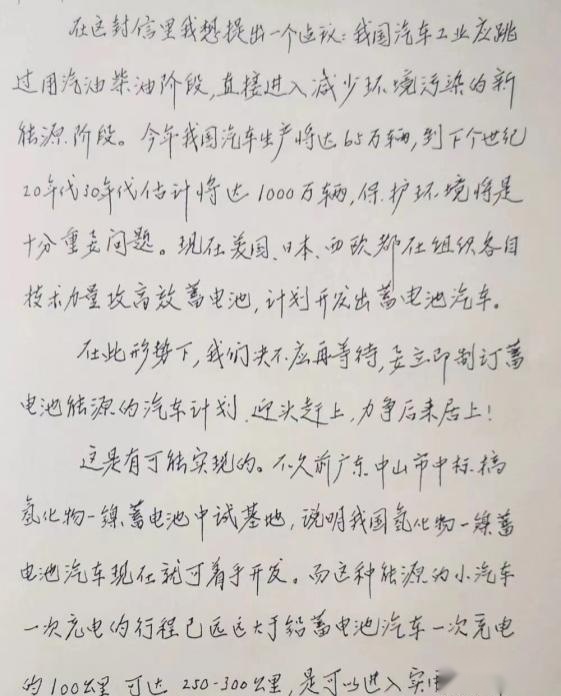 在这封信里我想提出一个建议：我国汽车工业应跳
过用汽油柴油阶段，直接进入减少环境污染的新
能源阶段。今年我国汽车生产将达65万辆，到下个世纪
20年代30年代估计将达1000万辆，保护环境将是
十分重要问题。现在美国、日本、西欧都在组织各自
技术力量攻高效蓄电池，计划开发出蓄电池汽车。
在此形势下，我们决不应再等待，要立即制订蓄
电池能源的汽车计划，迎头赶上，力争后来居上！
这是有可能实现的。不久前广东中山市中标搞
氢化物-镍蓄电池中试基地，说明我国氢化物-镍蓄
电池汽车现在就可着手开发。而这种能源的小汽车
一次充电的行程已远远大于铅蓄电池汽车一次充电
的100公里，可达250-300公里，是可以进入实用